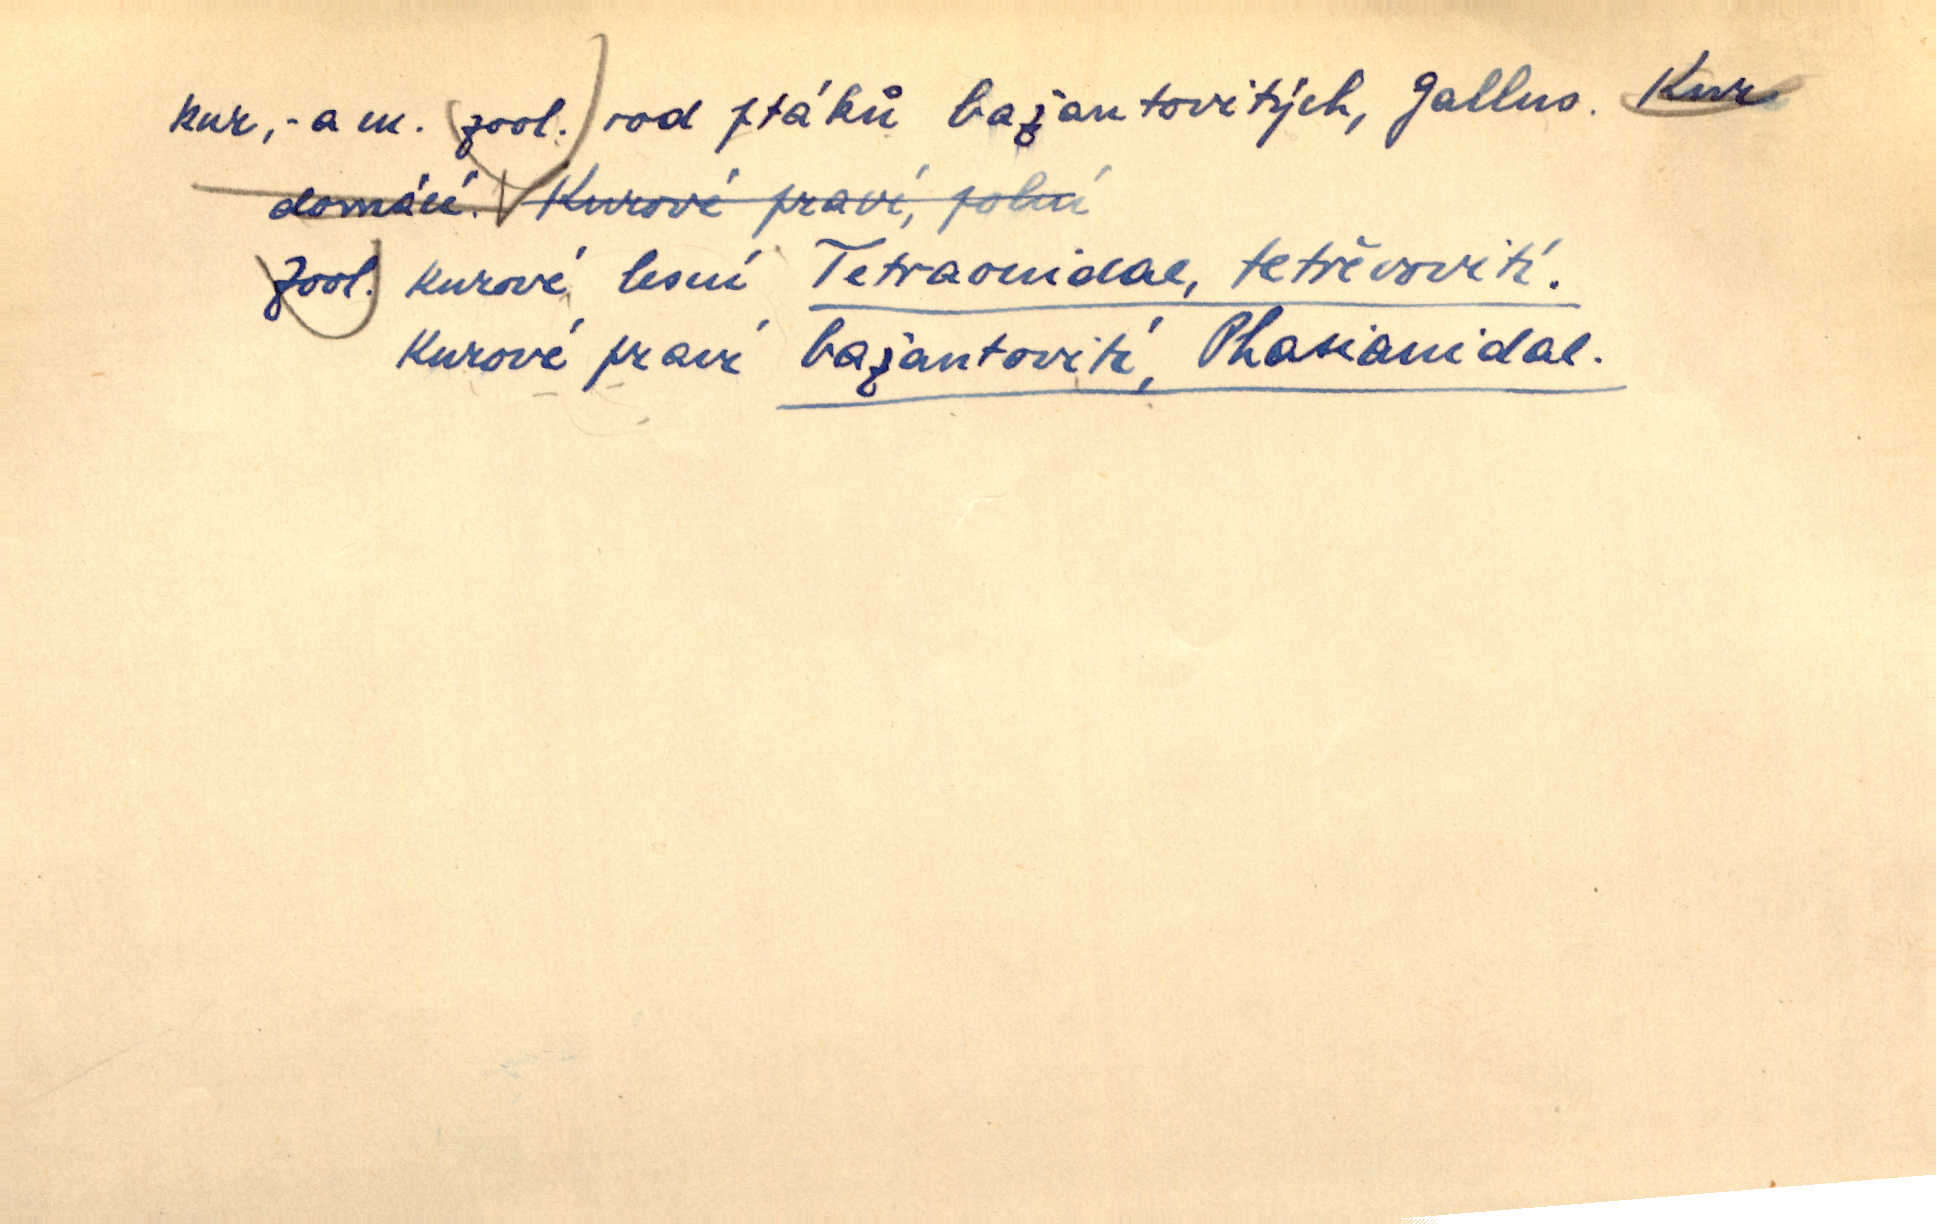 kur, -a m. zool. rod ptáků bažantovitých, Gallus. Kur
domácí. Kurové praví, polní
Zool. kurové lesní Tetraonidae, tetřevovití.
Kurové praví bažantovití, Phasianidae.